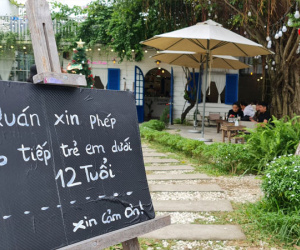 Quán xin phép
tiếp trẻ em dưới
12 TUỔI
xin Cảm ơn!